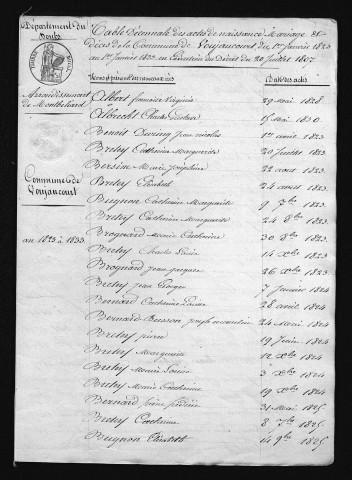 Département du
Doubs
Table Décennale des actes de naissance, Mariage et
décès de la Commune de Voujaucourt, du 1er Janvier 1823
au 1er Janvier 1833, en Exécution du Décret du 20 Juillet 1807
Arrondissement
de Montbéliard
Commune de
Voujaucourt
an 1823 à 1833
Noms et prénoms Date des actes
Albert françoise Virginie 29 Mai 1828
Albrecht Charles Gustave 15 Mai 1830
Benoit Jean nicolas 1er avril 1823
Bretey Catherine Marguerite 20 Juillet 1823
Marie Joséphine 22 aout 1823
Bretey Elisabeth 24 aout 1823
Bugnon Catherine Marguerite 9 7bre 1823
Bretey Catherine Marguerite 24 8bre 1823
Brognard Marie Catherine 30 8bre 1823
Bretey Charles Louis 14 Xbre 1823
Brognard jean jacques 26 Xbre 1823
Bretey jean George 7 Janvier 1824
Bernard Catherine Louise 28 avril 1824
Bernard Busson 24 Mai 1824
Bretey pierre 19 Juin 1824
Bretey Marguerite 12 Xbre 1824
Bretey Marie Louise 3 Xbre 1824
Bretey Marie Catherine 19 Xbre 1824
Bernard frédéric 31 Mai 1825
Bretey Catherine 8 7bre 1825
Bugnon Elisabeth 14 9bre 1825